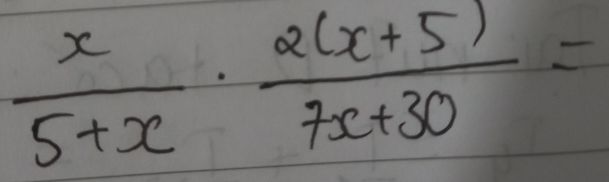 x/(5+x) · 2(x+5)/(7x+30) =